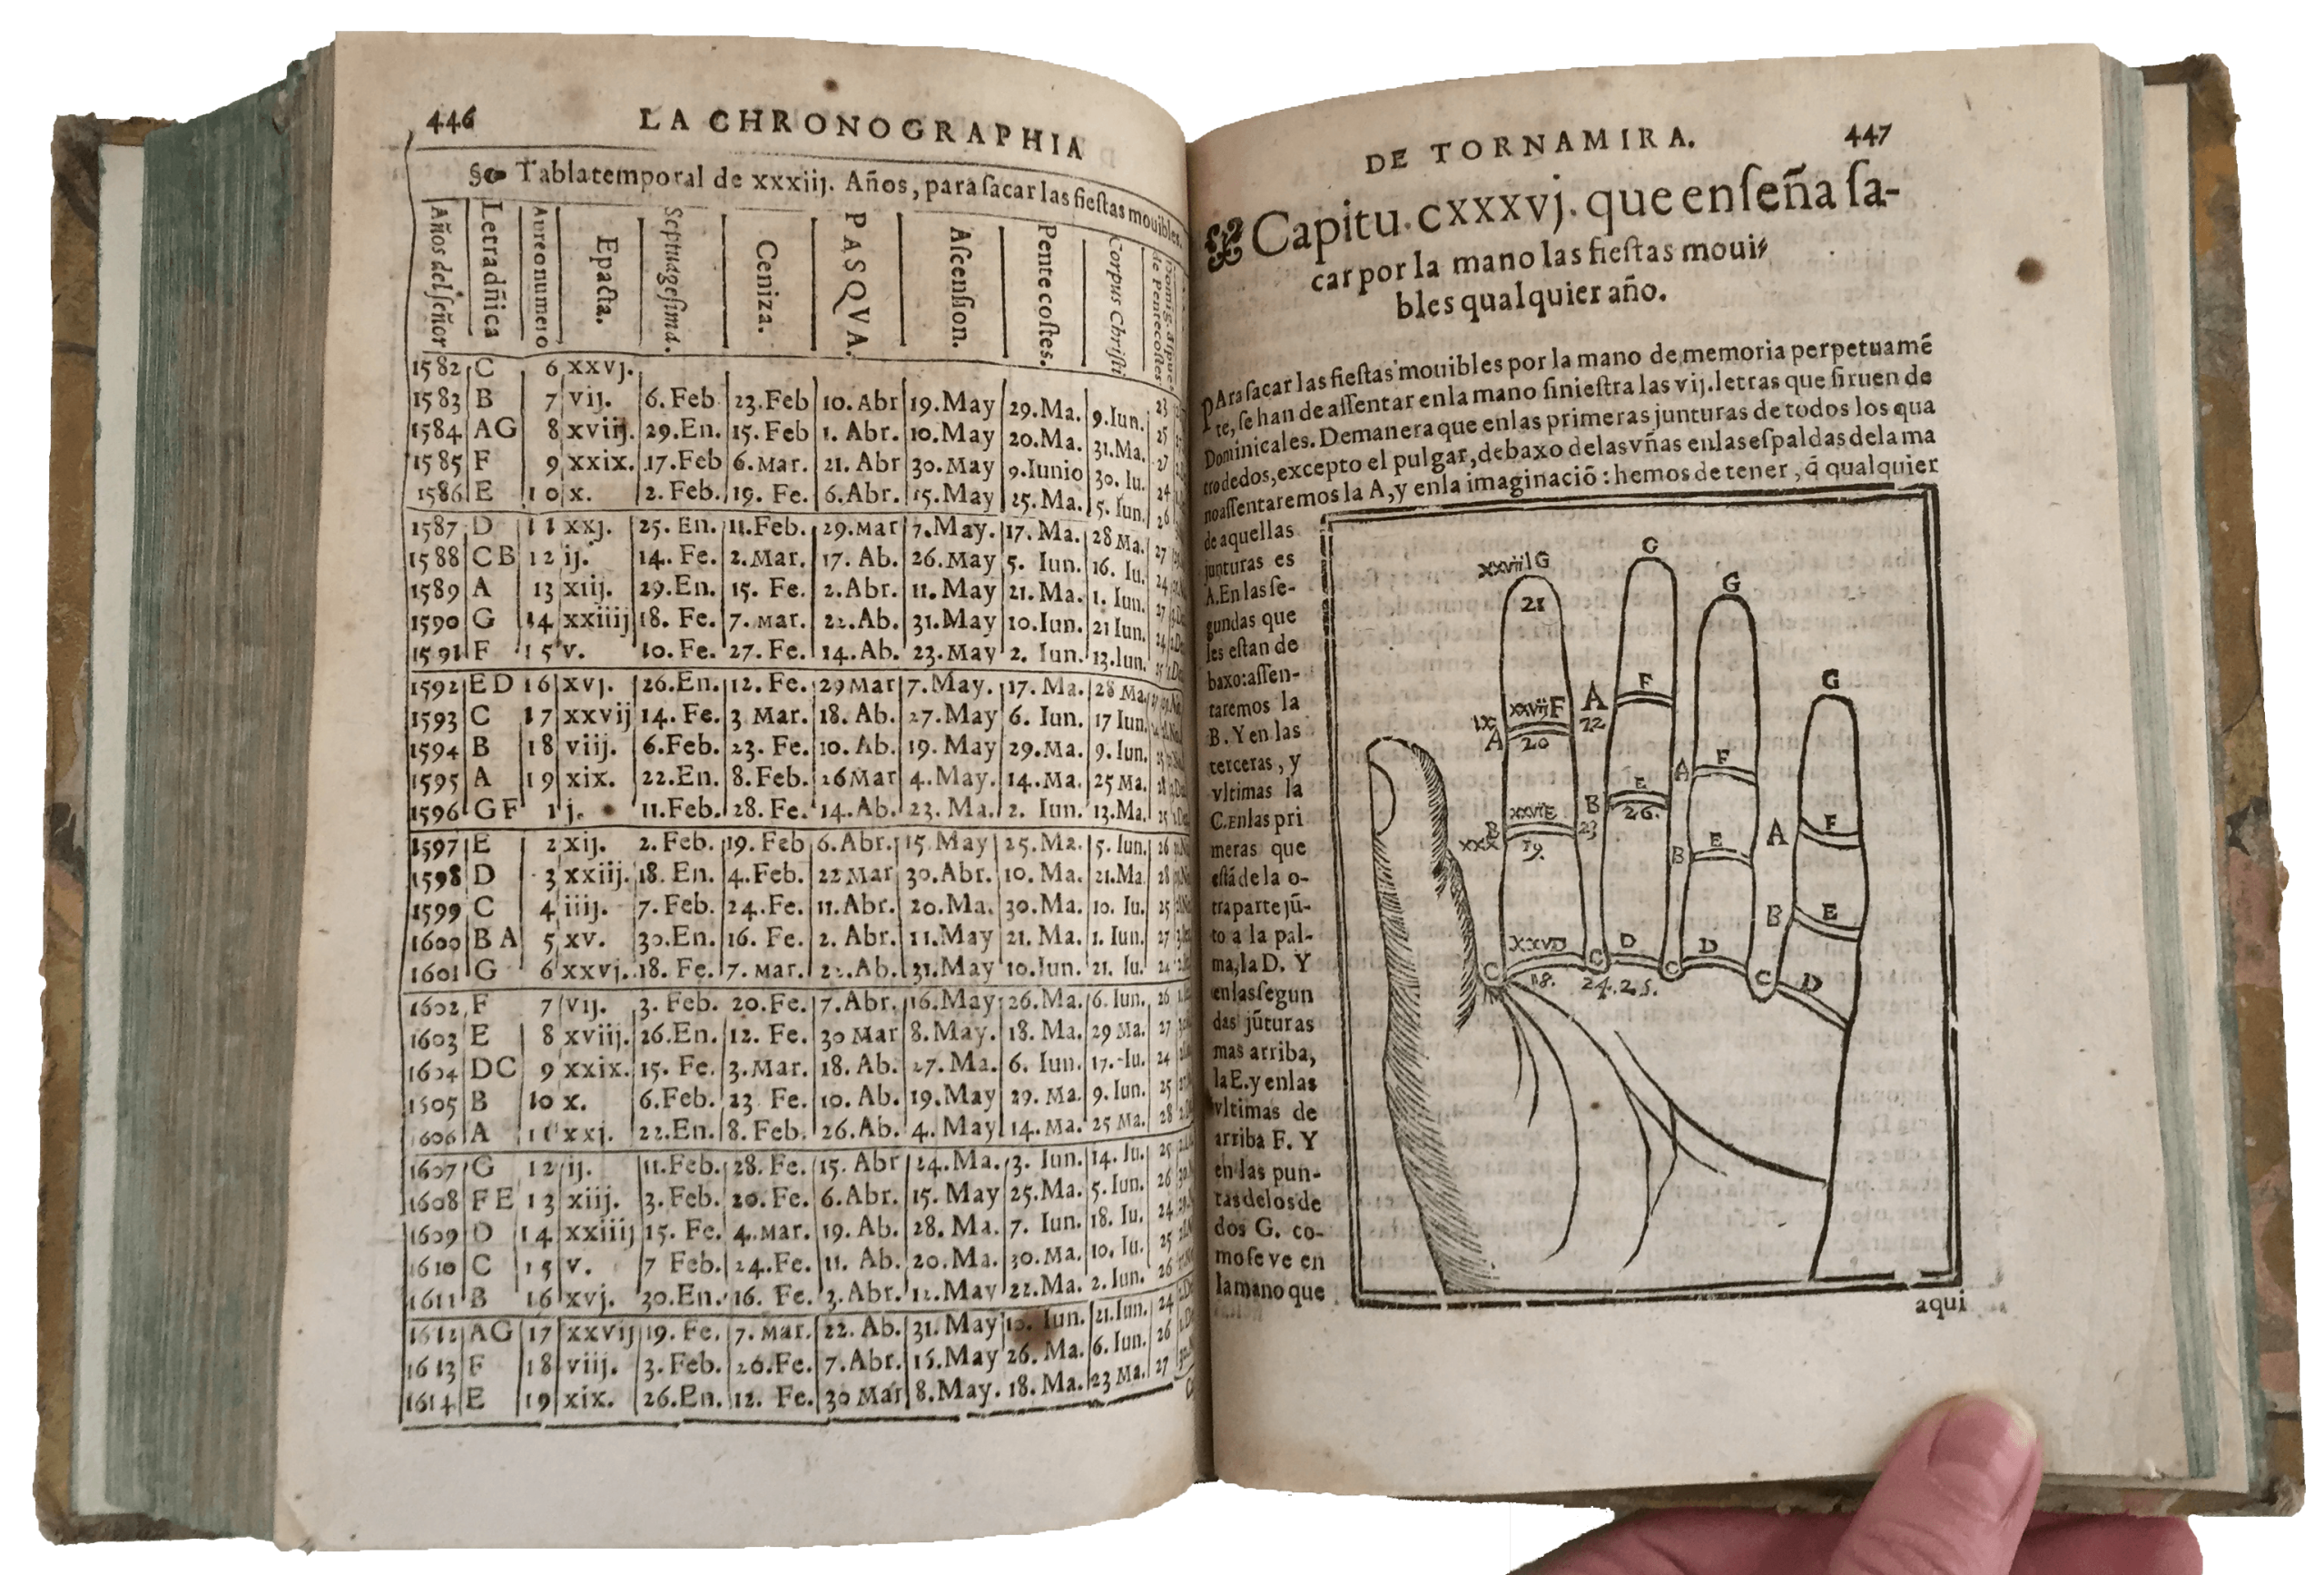 446 LA CHRONOGRAPHIA
Tabla temporal de xxxiij. Años, para ſacar las fieſtas mouibles.
Años del ſeñor Letra dñica Aureo numero Epacta. Septuageſima. Ceniza. PASQVA. Aſcenſion. Pentecoſtes. Corpus Chriſti
1582 C 6 xxvj.
1583 B 7 vij. 6. Feb 23. Feb 10. Abr 19. May 29. Ma. 9. Iun. 23
1584 AG 8 xviij. 29. En. 15. Feb 1. Abr. 10. May 20. Ma. 31. Ma. 25
1585 F 9 xxix. 17. Feb 6. Mar. 21. Abr 30. May 9. Iunio 30. Iu. 27
1586 E 10 x. 2. Feb. 19. Fe. 6. Abr. 15. May 25. Ma. 5. Iun. 24
1587 D 11 xxj. 25. En. 11. Feb. 29. Mar 7. May. 17. Ma. 28 Ma. 27
1588 CB 12 ij. 14. Fe. 2. Mar. 17. Ab. 26. May 5. Iun. 16. Iu. 24
1589 A 13 xiij. 29. En. 15. Fe. 2. Abr. 11. May 21. Ma. 1. Iun. 27
1590 G 14 xxiiij 18. Fe. 7. Mar. 22. Ab. 31. May 10. Iun. 21 Iun. 24
1591 F 15 v. 10. Fe. 27. Fe. 14. Ab. 23. May 2. Iun. 13. Iun. 25
1592 ED 16 xvj. 26. En. 12. Fe. 29 Mar 7. May. 17. Ma. 28 Ma. 27
1593 C 17 xxvij 14. Fe. 3 Mar. 18. Ab. 27. May 6. Iun. 17 Iun. 24
1594 B 18 viij. 6. Feb. 23. Fe. 10. Ab. 19. May 29. Ma. 9. Iun. 25
1595 A 19 xix. 22. En. 8. Feb. 26 Mar 4. May. 14. Ma. 25 Ma. 28
1596 GF 1 j. 11. Feb. 28. Fe. 14. Ab. 23. Ma. 2. Iun. 13. Ma. 25
1597 E 2 xij. 2. Feb. 19. Feb 6. Abr. 15 May 25. Ma. 5. Iun. 26
1598 D 3 xxiij. 18. En. 4. Feb. 22 Mar 30. Abr. 10. Ma. 21. Ma. 28
1599 C 4 iiij. 7. Feb. 24. Fe. 11. Abr. 20. Ma. 30. Ma. 10. Iu. 25
1600 BA 5 xv. 30. En. 16. Fe. 2. Abr. 11. May 21. Ma. 1. Iun. 27
1601 G 6 xxvj. 18. Fe. 7. Mar. 22. Ab. 31. May 10. Iun. 21. Iu. 24
1602 F 7 vij. 3. Feb. 20. Fe. 7. Abr. 16. May 26. Ma. 6. Iun. 26
1603 E 8 xviij. 26. En. 12. Fe. 30 Mar 8. May. 18. Ma. 29 Ma. 27
1604 DC 9 xxix. 15. Fe. 3. Mar. 18. Ab. 27. Ma. 6. Iun. 17. Iu. 24
1605 B 10 x. 6. Feb. 23 Fe. 10. Ab. 19. May 29. Ma. 9. Iun. 25
1606 A 11 xxj. 22. En. 8. Feb. 26. Ab. 4. May 14. Ma. 25 Ma. 28
1607 G 12 ij. 11. Feb. 28. Fe. 15. Abr 24. Ma. 3. Iun. 14. Iu. 25
1608 FE 13 xiij. 3. Feb. 20. Fe. 6. Abr. 15. May 25. Ma. 5. Iun. 26
1609 D 14 xxiiij 15. Fe. 4. Mar. 19. Ab. 28. Ma. 7. Iun. 18. Iu. 24
1610 C 15 v. 7 Feb. 24. Fe. 11. Ab. 20. Ma. 30. Ma. 10. Iu. 25
1611 B 16 xvj. 30. En. 16. Fe. 3. Abr. 12. May 22. Ma. 2. Iun. 26
1612 AG 17 xxvij 19. Fe. 7. Mar. 22. Ab. 31. May 10. Iun. 21. Iun. 24
1613 F 18 viij. 3. Feb. 20. Fe. 7. Abr. 16. May 26. Ma. 6. Iun. 26
1614 E 19 xix. 26. En. 12. Fe. 30 Mar 8. May. 18. Ma. 23 Ma. 27
DE TORNAMIRA. 447
Capitu. cxxxvj. que enſeña ſa-
car por la mano las fieſtas moui-
bles qualquier año.
PAra ſacar las fieſtas mouibles por la mano de memoria perpetuamē
te, ſe han de aſſentar en la mano ſinieſtra las vij. letras que ſiruen de
Dominicales. De manera que en las primeras junturas de todos los qua
tro dedos, excepto el pulgar, debaxo de las vñas en las eſpaldas de la ma
no aſſentaremos la A, y en la imaginaciō: hemos de tener, q̄ qualquier
de aquellas
junturas es
A. En las ſe-
gundas que
les eſtan de
baxo: aſſen-
taremos la
B. Y en las
terceras, y
vltimas la
C. En las pri
meras que
eſtá de la o-
tra parte jū-
to a la pal-
ma, la D. Y
en las ſegun
das jūturas
mas arriba,
la E. y en las
vltimas de
arriba F. Y
en las pun-
tas de los de
dos G. co-
mo ſe ve en
la mano que
xxviii G G G G
21
xxvii F A F
ix A 20 22
A F
xxvi E B E
xxx B 19. 23 26.
B E A F
B E
xxv D C D C D C D
C 18. 24. 25.
aqui